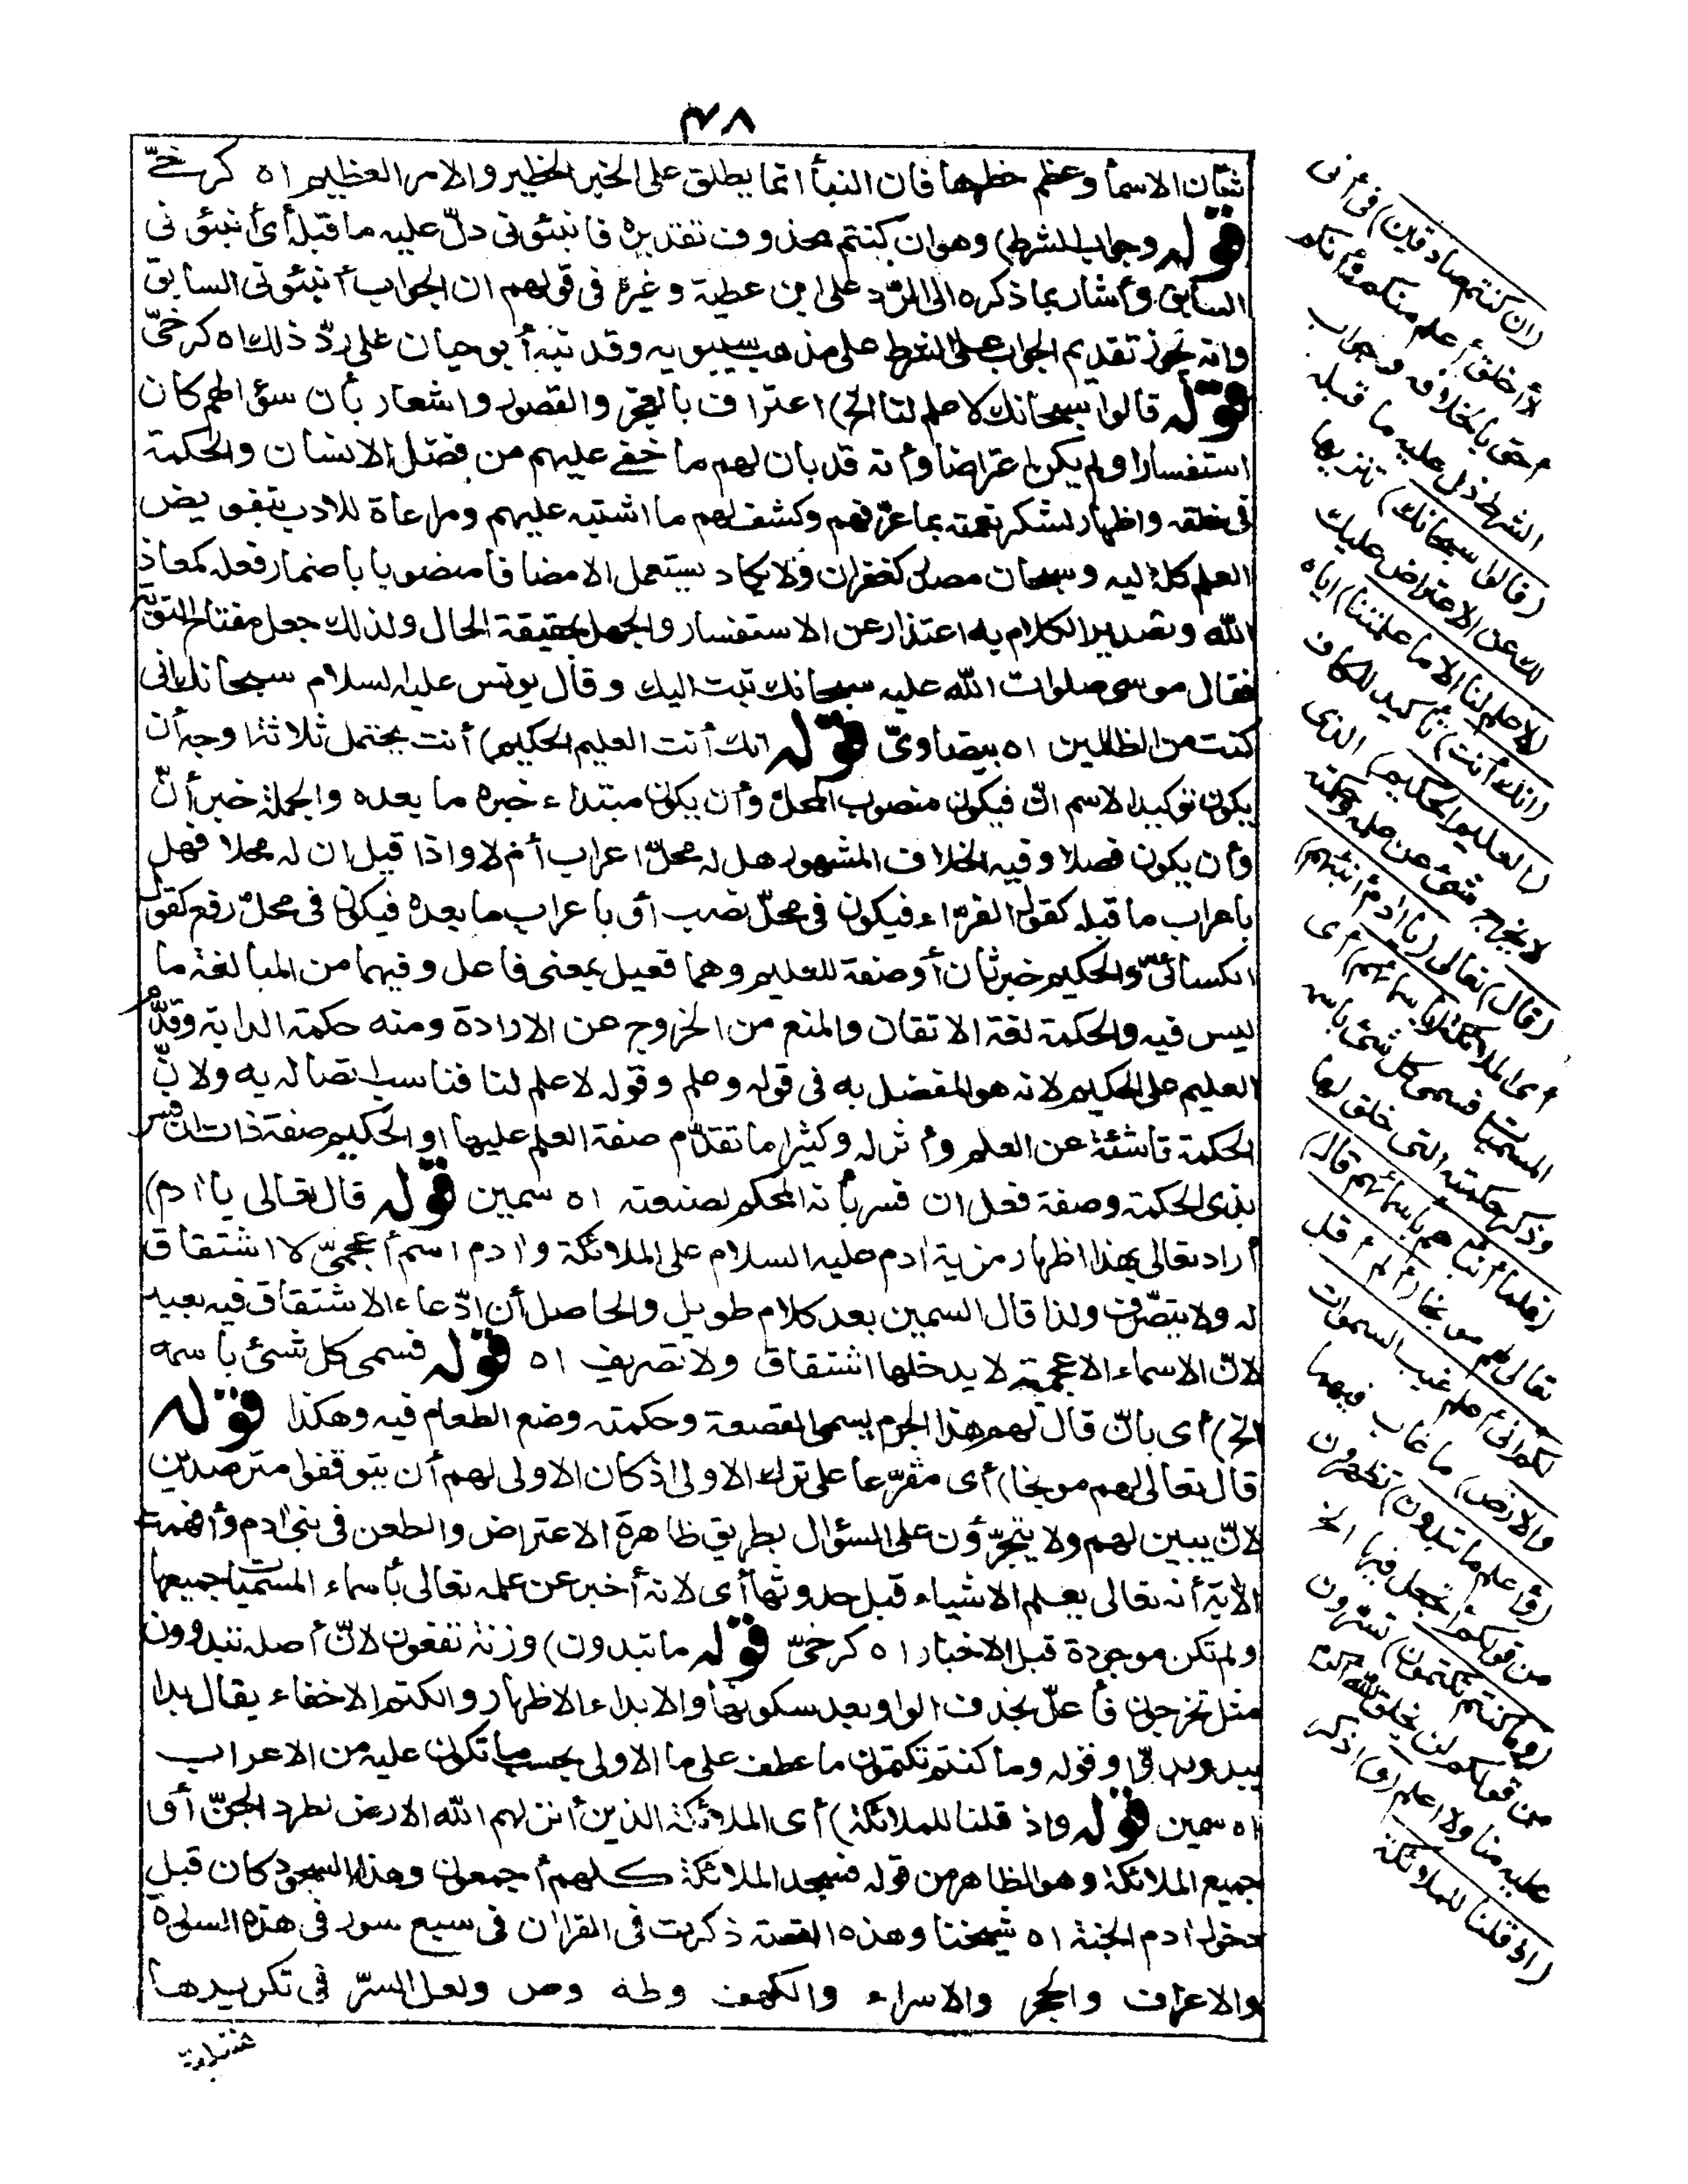 ٣٨
شأن الاسمأ وعظم خطرها فان النبأ انما يطلق على الخبر الخطير والامر العظيم اه كرخىّ
قوله وجواب الشرط) وهو ان كنتم محذوف تقديره فانبئونى دلّ عليه ما قبله أى أنبئونى
السابق وأشار بما ذكره الى الرّد على ابن عطية وغيره فى قولهم ان الجواب أنبئونى السابق
وانه يجوز تقديم الجواب على الشرط على مذهب سيبويه وقد نبّه أبو حيان على ردّ ذلك اه كرخىّ
قوله قالوا سبحانك لا علم لنا الخ) اعتراف بالعجز والقصور واشعار بأن سؤالهم كان
استفسارا ولم يكن اعتراضا وأنه قد بان لهم ما خفى عليهم من فضل الانسان والحكمة
فى خلقه واظهار لشكر نعمته بما عرّفهم وكشف لهم ما اشتبه عليهم ومراعاة للادب بتفويض
العلم كله اليه وسبحان مصدر كغفران ولا يكاد يستعمل الا مضافا منصوبا باضمار فعله كمعاذ
الله وتصدير الكلام به اعتذار عن الاستفسار والجهل بحقيقة الحال ولذلك جعل مفتاح التوبة
فقال موسى صلوات الله عليه سبحانك تبت اليك وقال يونس عليه السلام سبحانك انى
كنت من الظالمين اه بيضاوىّ قوله انك أنت العليم الحكيم) أنت يحتمل ثلاثة اوجه أن
يكون توكيدا لاسم انّ فيكون منصوب المحلّ وأن يكون مبتداء خبره ما بعده والجملة خبر أنّ
وأن يكون فصلا وفيه الخلاف المشهور هل له محلّ اعراب أم لا واذا قيل ان له محلا فهل
باعراب ما قبله كقول الفرّاء فيكون فى محلّ نصب أو باعراب ما بعده فيكون فى محلّ رفع كقول
الكسائىّ والحكيم خبر ثان أو صفة للعليم وهما فعيل بمعنى فاعل وفيهما من المبالغة ما
ليس فيه والحكمة لغة الاتقان والمنع من الخروج عن الارادة ومنه حكمة الدابة وقدّم
العليم على الحكيم لانه هو المفضل به فى قوله وعلم وقوله لا علم لنا فناسب اتصاله به ولانّ
الحكمة ناشئة عن العلم وأثر له وكثيرا ما تقدّم صفة العلم عليها او الحكيم صفة ذات ان فسر
بذى الحكمة وصفة فعل ان فسر بأنه المحكم لصنعته اه سمين قوله قال تعالى يا ادم)
أراد تعالى بهذا اظهار مزية ادم عليه السلام على الملائكة وادم اسم أعجمىّ لا اشتقاق
له ولا يتصّرف ولذا قال السمين بعد كلام طويل والحاصل أن ادّعاء الاشتقاق فيه بعيد
لانّ الاسماء الاعجمية لا يدخلها اشتقاق ولا تصريف اه قوله فسمى كل شئ باسمه
الخ) أى بانّ قال لهم هذا الجرم يسمى القصعة وحكمته وضع الطعام فيه وهكذا قوله
قال تعالى لهم موبخا) أى مقرّعا على ترك الاولى اذ كان الاولى لهم أن يتوقفوا مترصدين
لانّ يبين لهم ولا يتجرّؤن على السؤال بطريق ظاهرة الاعتراض والطعن فى بنى ادم وأفهمت
الآية أنه تعالى يعلم الاشياء قبل حدوثها أى لانه أخبر عن علمه تعالى بأسماء المسميات جميعها
ولم تكن موجودة قبل الاخبار اه كرخىّ قوله ما تبدون) وزنة تفعون لانّ أصله تبدوون
مثل تخرجون فأعلّ بحذف الواو بعد سكونها والابداء الاظهار والكتم الاخفاء يقال بدا
يبدو بدوّا وقوله وما كنتم تكتمون ما عطف على ما الاولى بحسب ما تكون عليه من الاعراب
اه سمين قوله واذ قلنا للملائكة) أى الملائكة الذين أنزلهم الله الارض لطرد الجنّ أو
جميع الملائكة وهو الظاهر من قوله فسجد الملائكة كلهم أجمعون وهذا السجود كان قبل
دخول ادم الجنة اه شيخنا وهذه القصة ذكرت فى القران فى سبع سور فى هذه السورة
والاعراف والحجر والاسراء والكهف وطه وص ولعل السرّ فى تكريرها
(ان كنتم صادقين) فى أنى
لا أخلق أعلم منكم وأنكم
أحق بالخلافة وجواب
الشرط دل عليه ما قبله
(قالوا سبحانك) تنزيها
لك عن الاعتراض عليك
(لا علم لنا الا ما علمتنا) اياه
(انك أنت) تأكيد للكاف
(العليم الحكيم) الذى
لا يخرج شئ عن علمه وحكمته
(قال) تعالى (يا ادم أنبئهم)
أى الملائكة (باسمائهم) أى
المسميات فسمى كل شئ باسمه
وذكر حكمته التى خلق لها
(فلما أنبأهم باسمائهم قال)
تعالى لهم موبخا (ألم أقل
لكم انى أعلم غيب السموات
والارض) ما غاب فيهما
(وأعلم ما تبدون) تظهرون
من قولكم أتجعل فيها الخ
(وما كنتم تكتمون) تسرّون
من قولكم لن يخلق الله أكرم
عليه منا ولا اعلم (و) اذكر
(اذ قلنا للملائكة